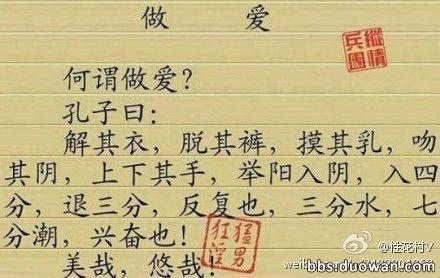 做 爱
何谓做爱？
孔子曰：
解其衣，脱其裤，摸其乳，吻
其阴，上下其手，举阳入阴，入四
分，退三分，反复也，三分水，七
分潮，兴奋也！
美哉，悠哉！
纵情
兵团
猛男
狂淫
@性花村V
bbs.duowan.com